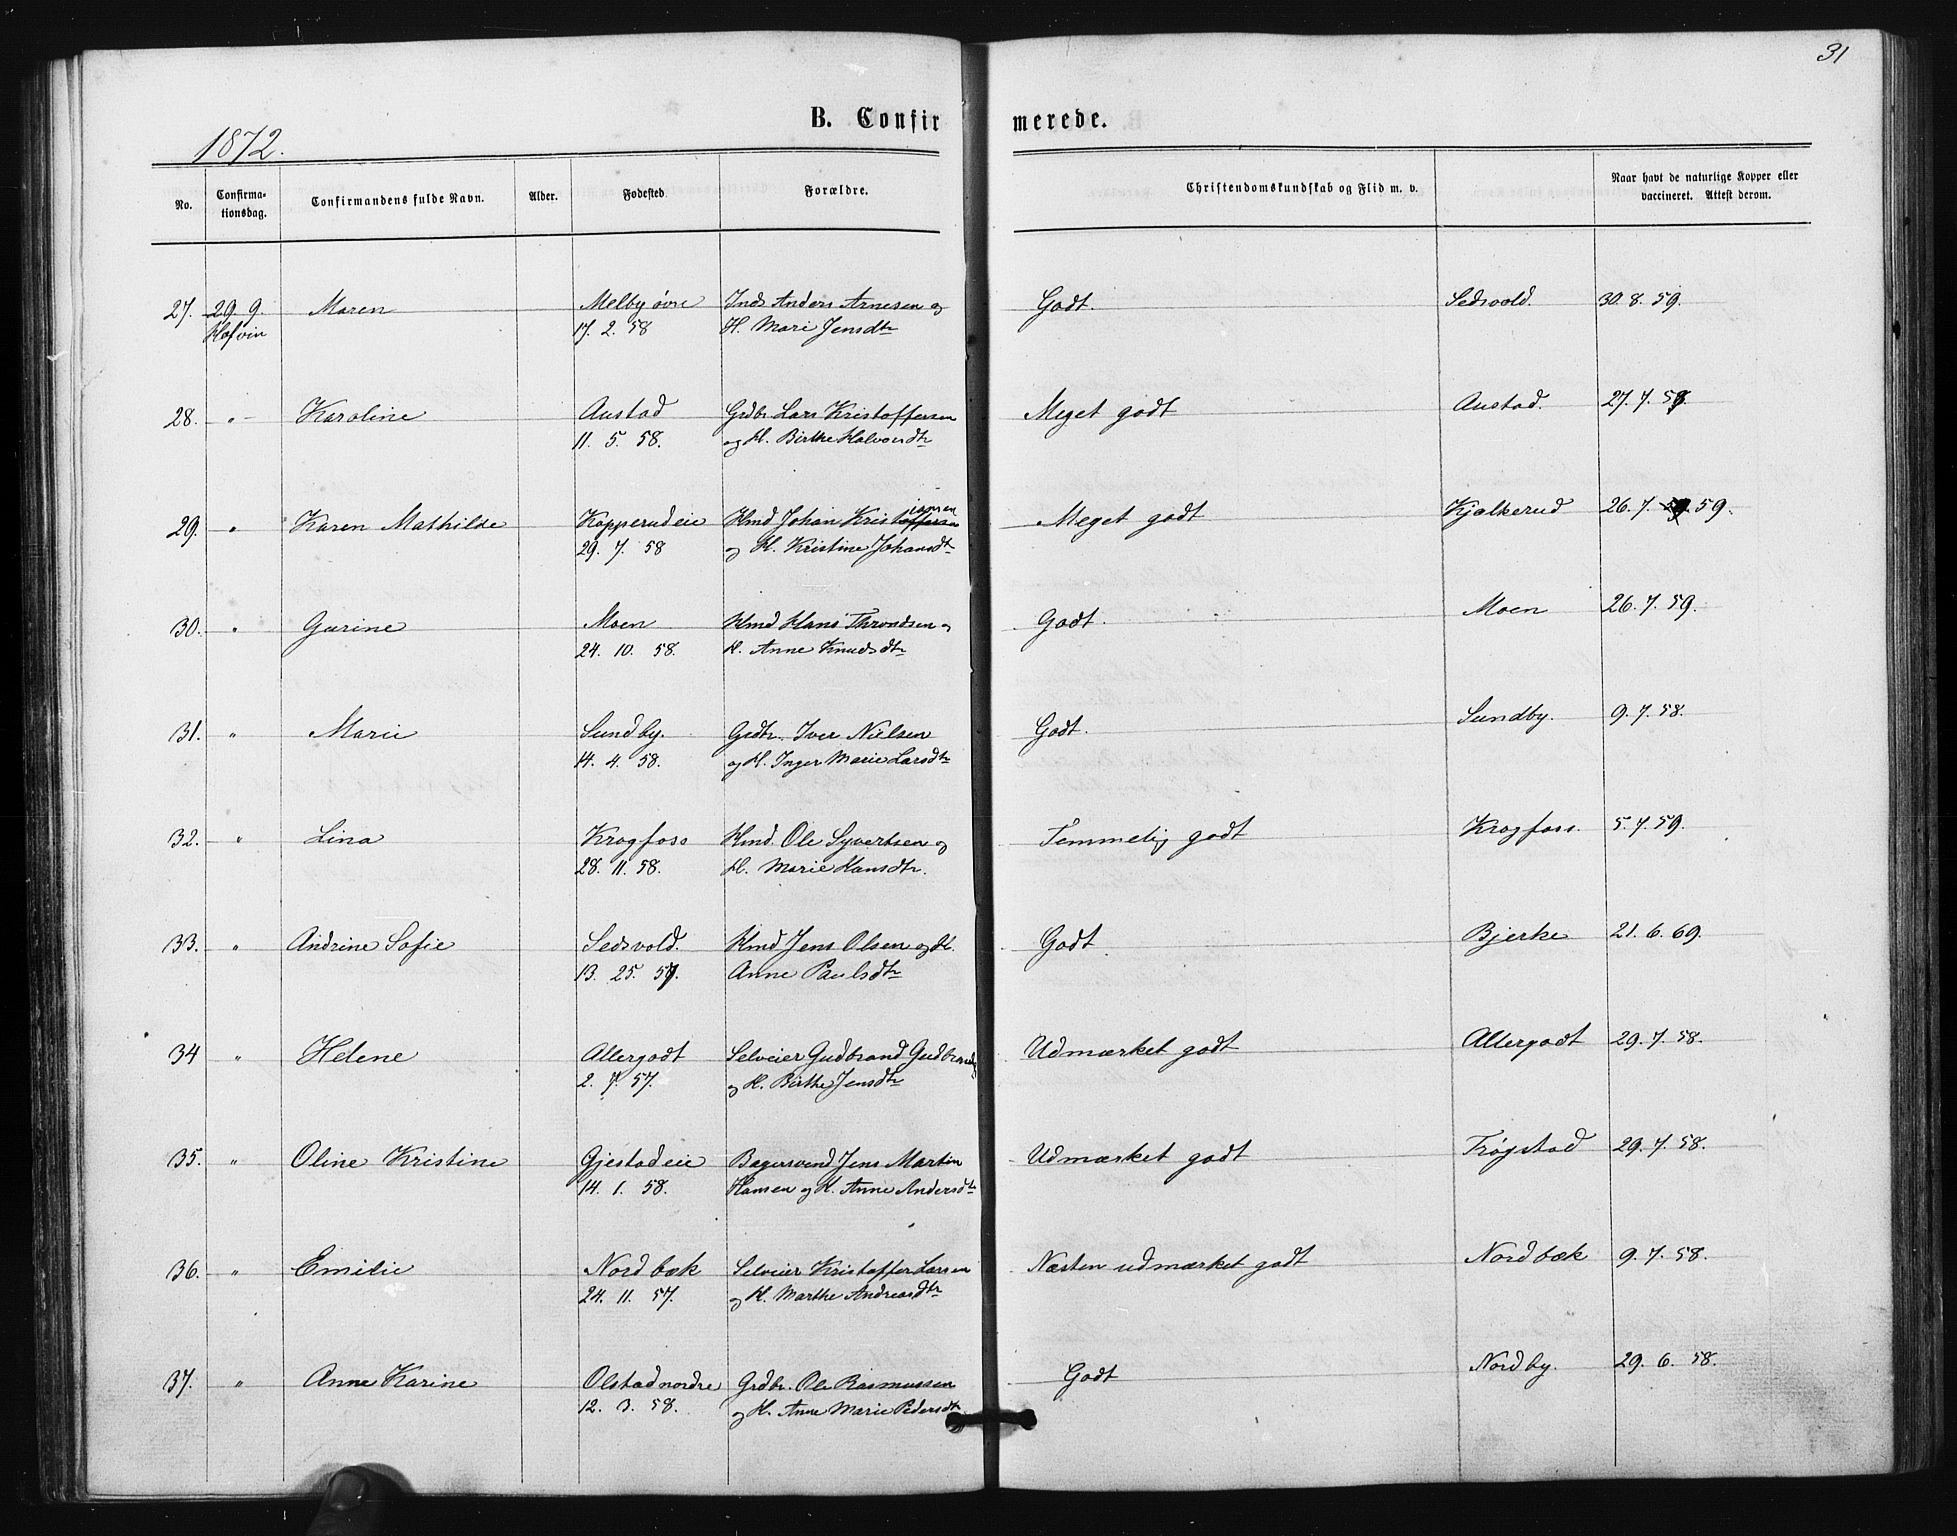 31
1872.
B. Confirmerede.
No. Confirmationsdag. Confirmandens fulde Navn. Alder. Fødested Forældre. Christendomskundskab og Flid m. v. Naar havt de naturlige Kopper eller vaccineret. Attest derom.
27. 29. 9. Maren Melby øvre Inds Anders Arnesen og Godt. Sedsvold. 30. 8. 59.
Hofvin 17. 2. 58 H. Mari Jensdtr
28. " Karoline Austad Grdbr. Lars Kristoffersen Meget godt Austad. 27. 7. 58.
11. 5. 58. og H. Birthe Halvorsdtr
29. " Karen Mathilde Kopperudeie Hmd Johan Kristiansen Meget godt Kjølkerud 26. 7. 59.
29. 7. 58 og H. Kristine Johansdtr
30. " Gurine Moen Hmd Hans Throndsen og Godt. Moen 26. 7. 59.
24. 10. 58. H. Anne Knudsdtr
31. " Marie Sundby. Grdbr. Iver Nielsen Godt. Sundby. 9. 7. 58.
14. 4. 58. og H. Inger Marie Larsdtr
32. " Lina Krogfoss Hmd. Ole Syvertsen og Temmelig godt Krogfoss. 5. 7. 59.
28. 11. 58. H. Marie Hansdtr.
33. " Andrine Sofie Sedsvold. Hmd Jens Olsen og H. Godt Bjerke 21. 6. 69.
13. 25. 57. Anne Paulsdtr
34 " Helene Allergodt Selveier Gudbrand Gudbrands Udmærket godt Allergodt 29. 7. 58.
2. 7. 57. og H. Birthe Jensdtr
35. " Oline Kristine Gjestadeie Bagersvend Jens Martin Udmærket godt Frøgstad 29. 7. 58.
14. 1. 58. Hansen og H. Anne Andersdtr
36. " Emilie Nordbæk Selveier Kristoffer Larsen Næsten udmærket godt Nordbæk 9. 7. 58.
24. 11. 57. og H. Marthe Andreasdtr
37. " Anne Karine Olstad nordre Grdbr. Ole Rasmussen Godt Nordby. 29. 6. 58.
12. 3. 58. og H. Anne Marie Pedersdtr